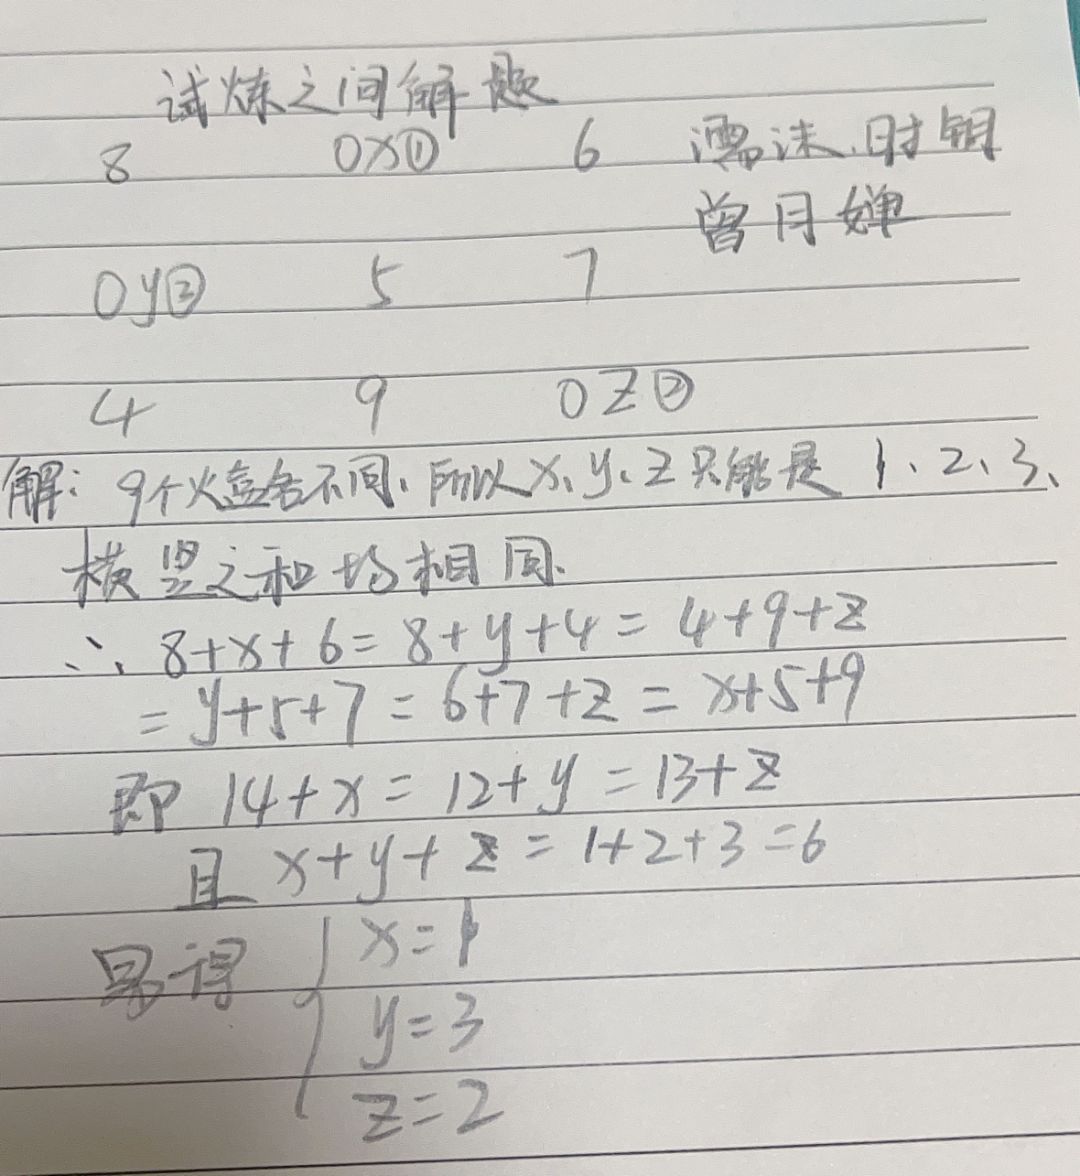 试炼之间解题
8 0x① 6 濡沫.时钥
曾月婵
0y③ 5 7
4 9 0Z②
解: 9个火盒各不同, 所以x、y、z只能是 1、2、3、
横竖之和均相同.
∴ 8+x+6=8+y+4=4+9+z
=y+5+7=6+7+z=x+5+9
即 14+x=12+y=13+z
且 x+y+z=1+2+3=6
易得 { x=1
y=3
z=2